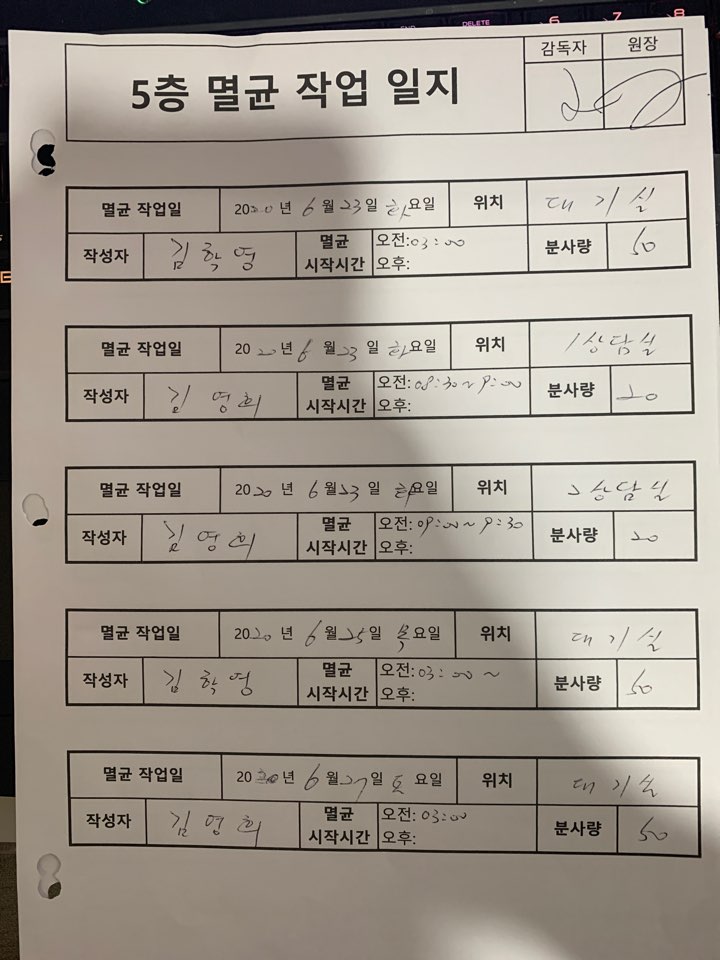 DELETE
6 7 8
감독자 원장
5층 멸균 작업 일지
멸균 작업일 2020년 6월 23일 화요일 위치 대기실
작성자 김학영 멸균 시작시간 오전:03:00 오후: 분사량 50
멸균 작업일 2020년 6월 23일 화요일 위치 1상담실
작성자 김영희 멸균 시작시간 오전:08:30~9:00 오후: 분사량 20
멸균 작업일 2020년 6월 23일 화요일 위치 2상담실
작성자 김영희 멸균 시작시간 오전:09:00~9:30 오후: 분사량 20
멸균 작업일 2020년 6월 25일 목요일 위치 대기실
작성자 김학영 멸균 시작시간 오전:03:00~ 오후: 분사량 50
멸균 작업일 2020년 6월 27일 토요일 위치 대기실
작성자 김영희 멸균 시작시간 오전:03:00 오후: 분사량 50